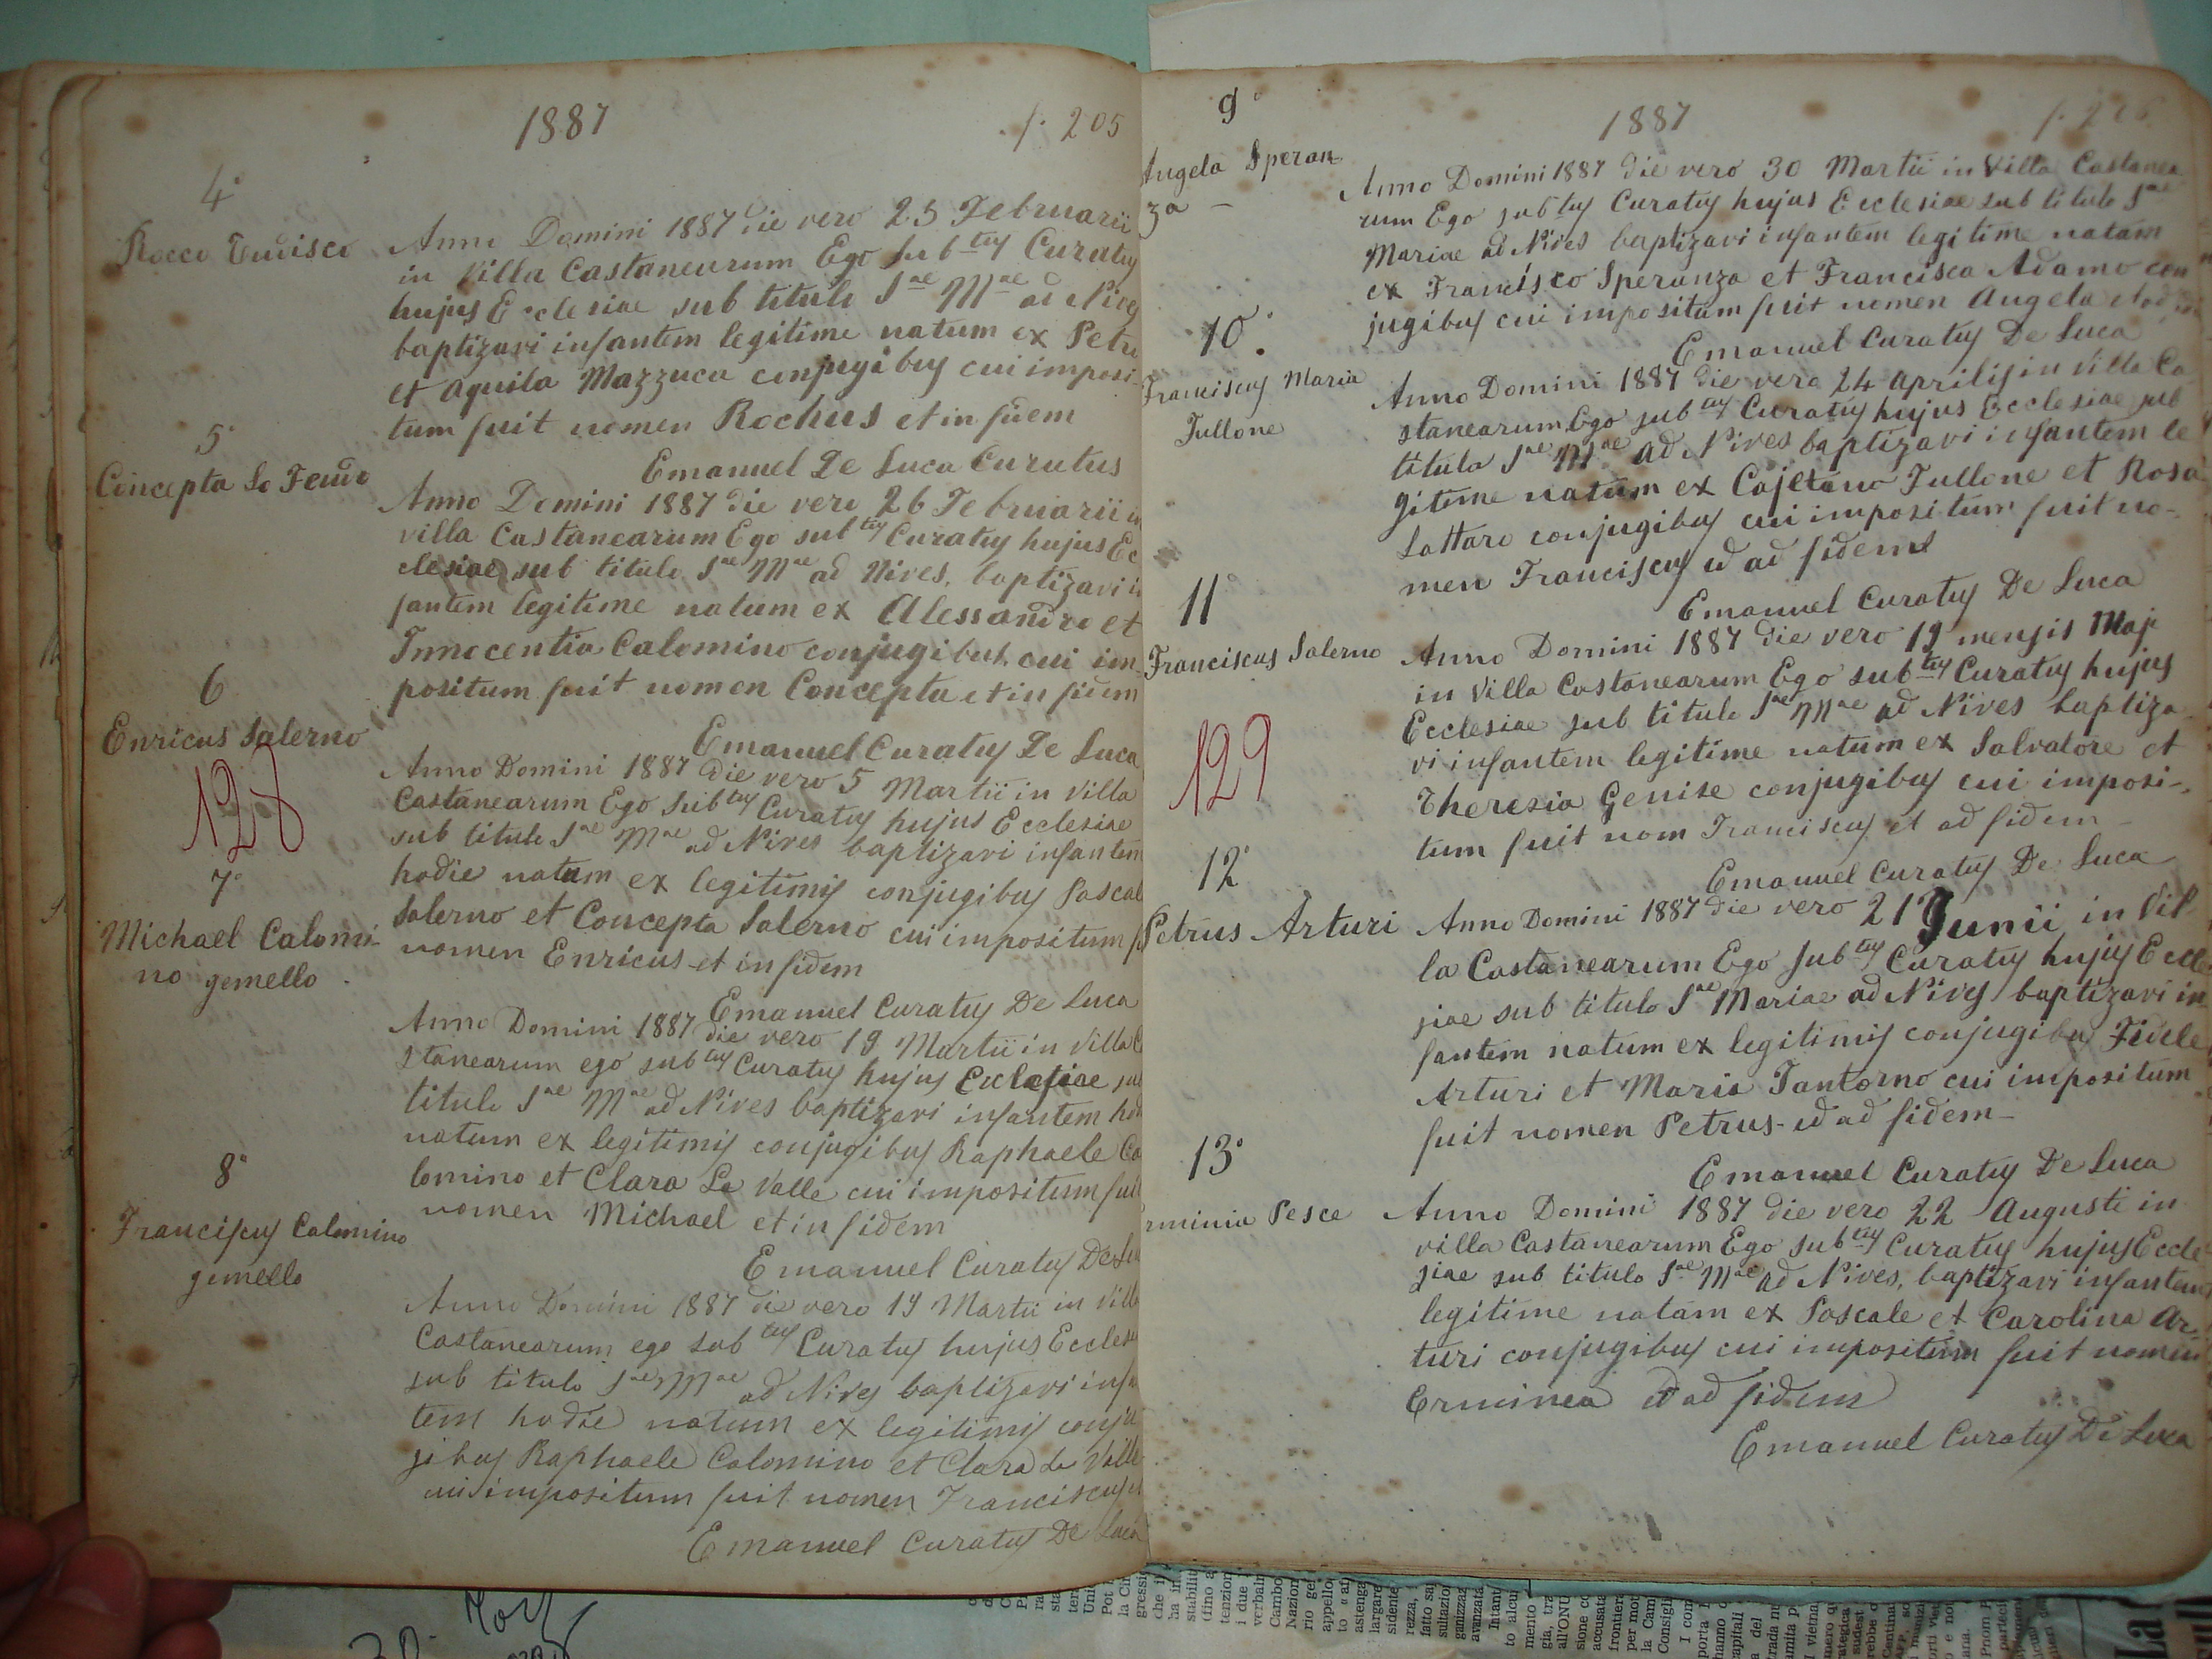 1887
f. 205
4°
Rocco Tudisco
Anno Domini 1887 die vero 25 Februarii
in Villa Castanearum Ego Subtus Curatus
hujus Ecclesiae sub titulo Sae Mae ad Nives
baptizavi infantem legitime natum ex Petro
et Aquila Mazzuca conjugibus cui imposi-
tum fuit nomen Rochus et in fidem
Emanuel De Luca Curatus
5°
Concepta Lo Feudo
Anno Domini 1887 die vero 26 Februarii in
villa Castanearum Ego subtus Curatus hujus Ec
clesiae sub titulo Sae Mae ad Nives, baptizavi in
fantem legitime natum ex Alessandro et
Innocentia Calomino conjugibus, cui im-
positum fuit nomen Concepta et in fidem
Emanuel Curatus De Luca
6
Enricus Salerno
128
Anno Domini 1887 die vero 5 Martii in Villa
Castanearum Ego Subtus Curatus hujus Ecclesiae
sub titulo Sae Mae ad Nives baptizavi infantem
hodie natum ex legitimis conjugibus Pascal
Salerno et Concepta Salerno cui impositum f
nomen Enricus et in fidem
Emanuel Curatus De Luca
7°
Michael Calomi-
no gemello
Anno Domini 1887 die vero 19 Martii in Villa Ca
stanearum ego subtus Curatus hujus Ecclesiae sub
titulo Sae Mae ad Nives baptizavi infantem hod
natum ex legitimis conjugibus Raphaele Ca
lomino et Clara La Valle cui impositum fuit
nomen Michael et in fidem
Emanuel Curatus De Lu
8°
Franciscus Calomino
gemello
Anno Domini 1887 die vero 19 Martii in Villa
Castanearum ego subtus Curatus hujus Eccles
sub titulo Sae Mae ad Nives baptizavi infa
tem hodie natum ex legitimis conju
gibus Raphaele Calomino et Clara La Valle
cui impositum fuit nomen Franciscus
Emanuel Curatus De Luca
9°
1887
Angela Speran-
za -
Anno Domini 1887 die vero 30 Martii in Villa Castanea
rum Ego subtus Curatus hujus Ecclesiae sub titulo Sae
Mariae ad Nives baptizavi infantem legitime natam
ex Francisco Speranza et Francisca Adamo con
jugibus cui impositum fuit nomen Angela
Emanuel Curatus De Luca
10°.
Franciscus Maria
Tullone
Anno Domini 1887 die vero 24 Aprilis in Villa Ca
stanearum Ego subtus Curatus hujus Ecclesiae sub
titulo Sae Mae ad Nives baptizavi infantem le
gitime natum ex Cajetano Tullone et Rosa
Lattaro conjugibus cui impositum fuit no-
men Franciscus et ad fidem
Emanuel Curatus De Luca
11°
Franciscus Salerno
129
Anno Domini 1887 die vero 19 mensis Maji
in Villa Castanearum Ego subtus Curatus hujus
Ecclesiae sub titulo Sae Mae ad Nives baptiza
vi infantem legitime natum ex Salvatore et
Theresia Genise conjugibus cui imposi-
tum fuit nom Franciscus et ad fidem
Emanuel Curatus De Luca
12°
Petrus Arturi
Anno Domini 1887 die vero 21 Junii in Vil-
la Castanearum Ego Subtus Curatus hujus Eccle
siae sub titulo Sae Mariae ad Nives baptizavi in
fantem natum ex legitimis conjugibus Fidele
Arturi et Maria Tantorno cui impositum
fuit nomen Petrus - et ad fidem
Emanuel Curatus De Luca
13°
rminia Pesce
Anno Domini 1887 die vero 22 Augusti in
villa Castanearum Ego Subtus Curatus hujus Eccle
siae sub titulo Sae Mae ad Nives, baptizavi infantem
legitime natam ex Pascale et Carolina Ar-
turi conjugibus cui impositum fuit nomen
Erminea et ad fidem
Emanuel Curatus De Luca